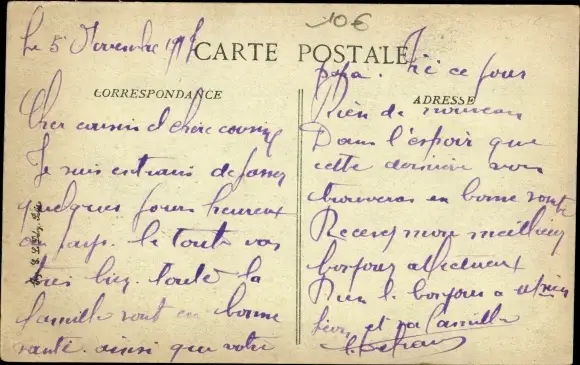 10€
Le 5 Novembre 191
CARTE POSTALE
CORRESPONDANCE
ADRESSE
Cher cousin et chere cousine
Je suis entrain de passer
quelques jours heureux
au pays. Ici toute vas
tres bien. toute la
famille sont en bonne
santé. ainsi que votre
papa. Ici ce jour
Rien de nouveau
Dans l'espoir que
cette derniere vous
trouveras en bonne santé
Recevez mon meilleur
bonjour affectueux
Bien le bonjour a
et sa famille